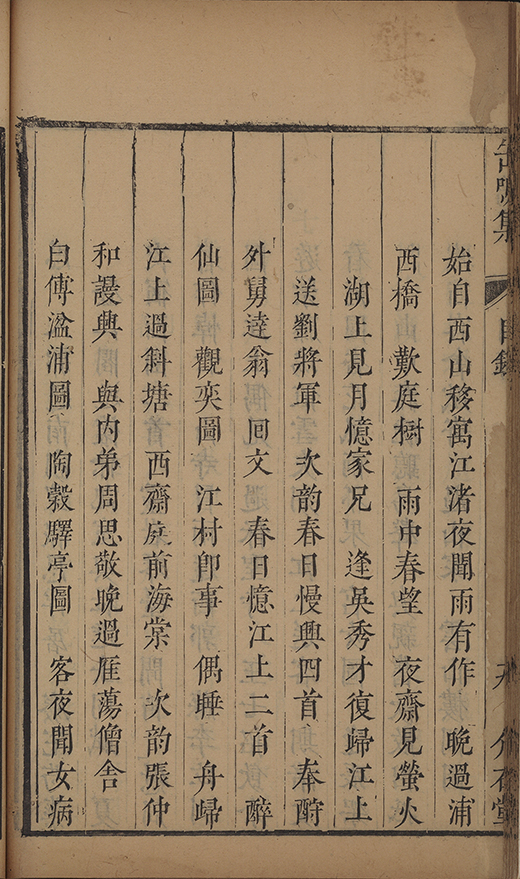 始自西山移寓江渚夜聞雨有作 晚過浦
西橋 歎庭樹 雨中春望 夜齋見螢火
湖上見月憶家兄 逢吳秀才復歸江上
送劉將軍 次韵春日慢興四首 奉酧
外舅逹翁囘文 春日憶江上二首 醉
仙圖 觀奕圖 江村卽事 偶睡 舟歸
江上過斜塘首 西齋庭前海棠 次韵張仲
和謾興 與内弟周思敬晚過厓蕩僧舍
白傅湓浦圖 陶穀驛亭圖 客夜聞女病
缶鳴集 目錄 介石堂